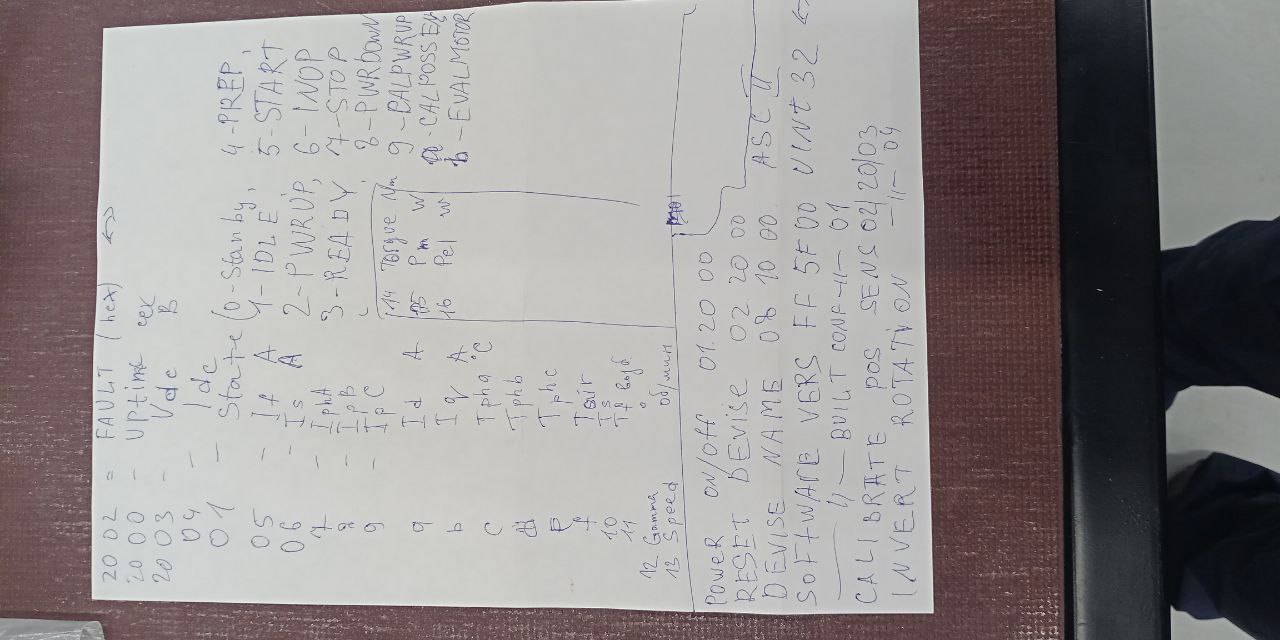 20 02 = FAULT (hex) <->
20 00 - Uptime сек
20 03 - Vdc В
04 - Idc
01 - State (0-Stanby,
1-IDLE,
2-PWRUP,
3-READY
4-PREP,
5-START
6-INOP
7-STOP
8-PWRDOWN
9-CALPWRUP
a-CALPOSSEN
b-EVALMOTOR
05 - If A
06 - Is A
7 - IphA
8 - IpB
9 - IpC
a Id A
b Iq A
C Tpha °C
d Tphb
E Tphc
f Tair
10 Ts
11 Tf возб.
12 Gamma °
13 Speed об/мин
14 Torgue Nm
15 Pm W
16 Pel W
POWER ON/OFF 01.20 00
RESET DEVISE 02 20 00
DEVISE NAME 08 10 00 ASC II
SOFTWARE VERS FF 5F 00 UINT 32 <->
—〃— BUILT CONF —〃— 01
CALIBRATE POS SENS 02/20/03
INVERT ROTATION —〃— 04